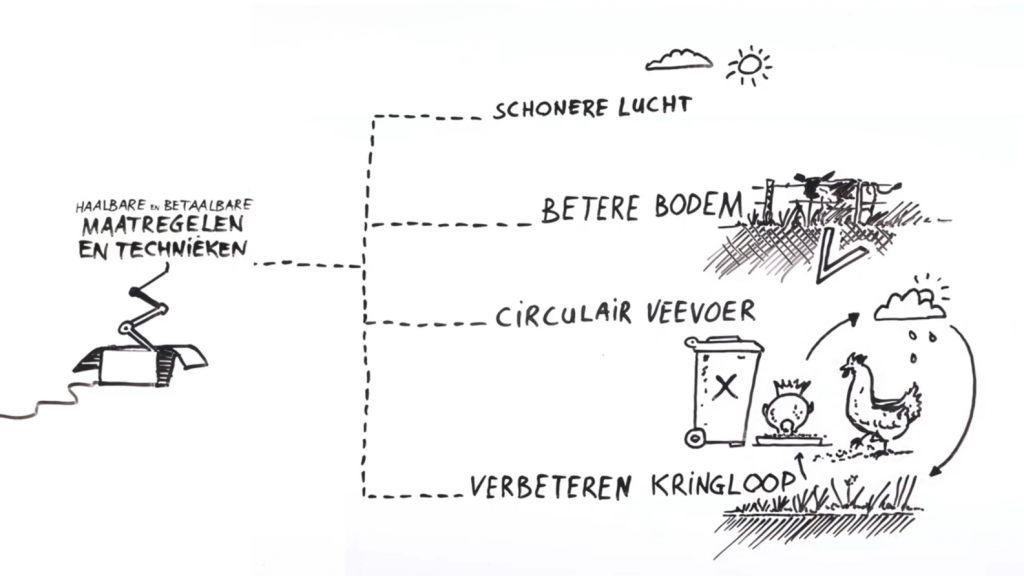 HAALBARE EN BETAALBARE
MAATREGELEN
EN TECHNIËKEN
SCHONERE LUCHT
BETERE BODEM
CIRCULAIR VEEVOER
X
VERBETEREN KRINGLOOP